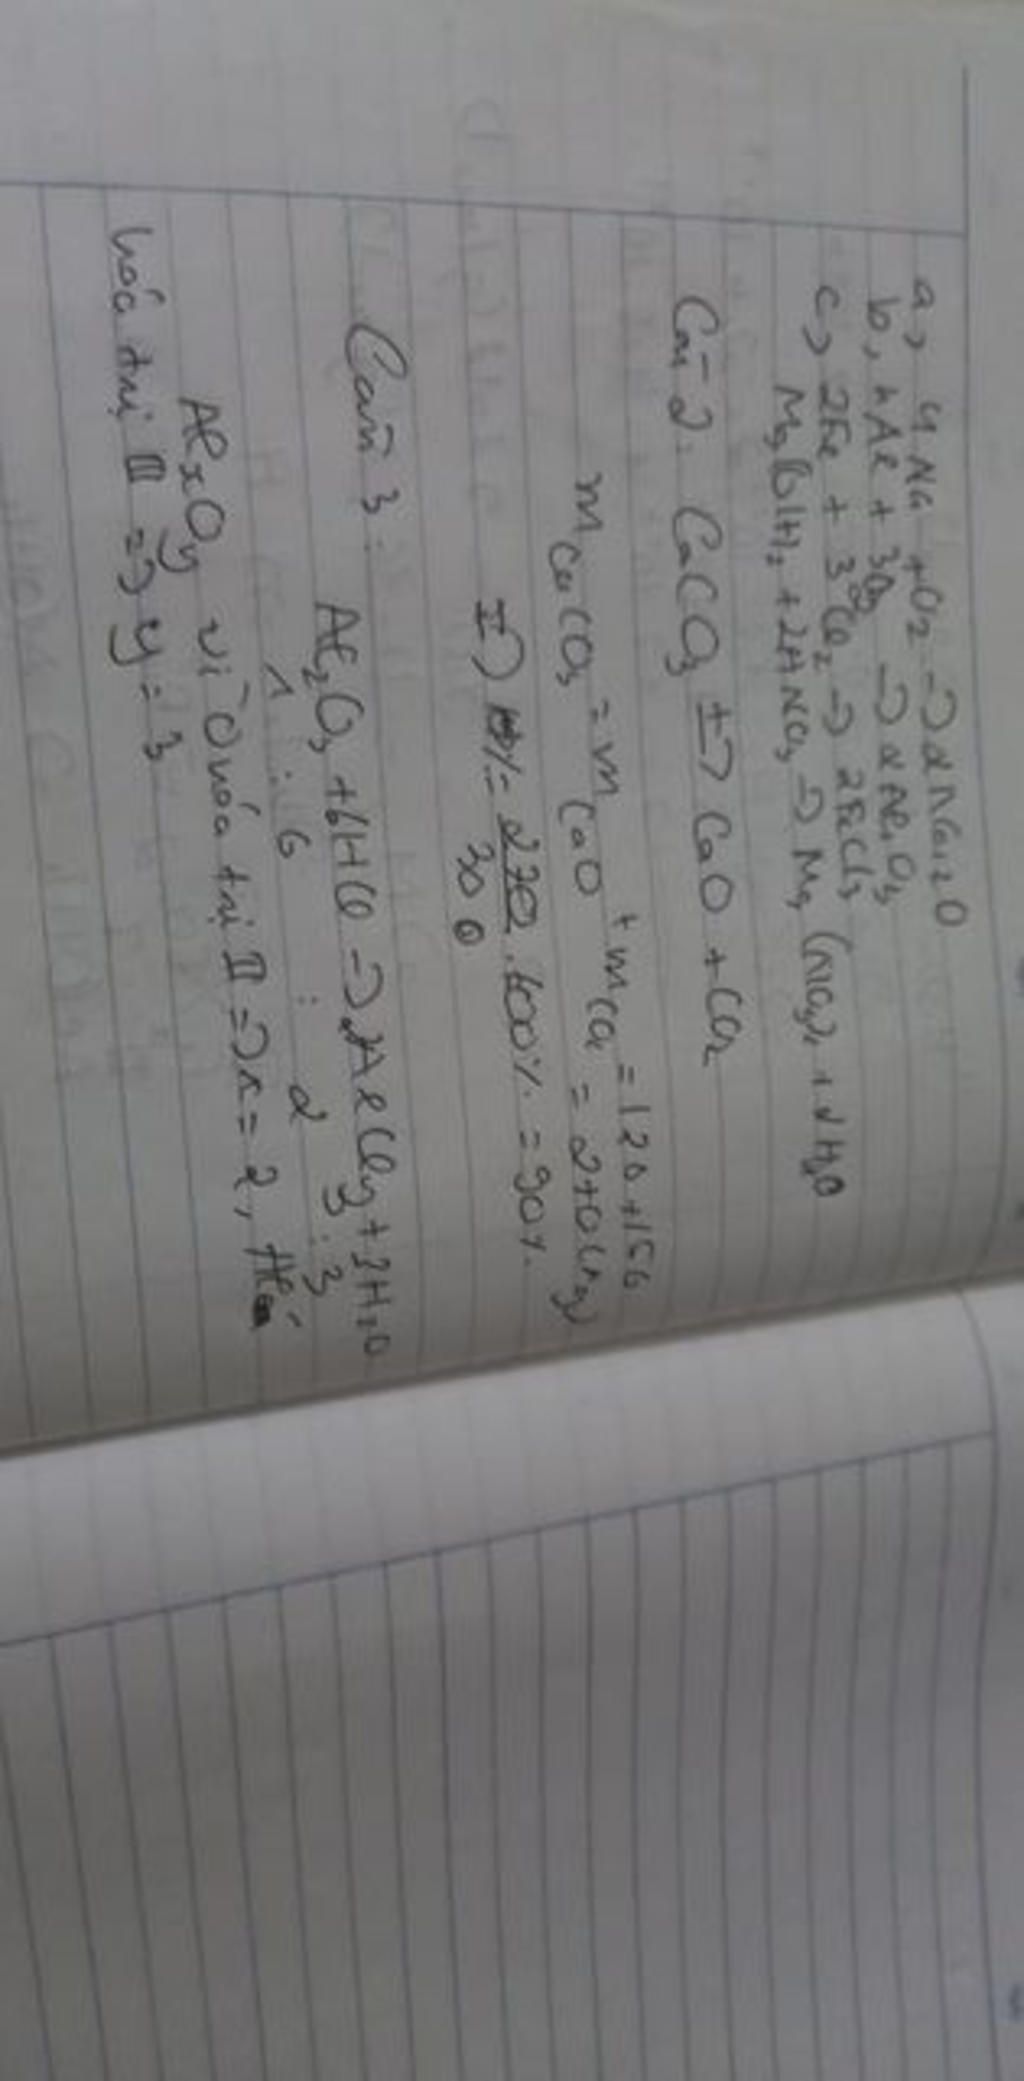 a, 4Na + O2 -> 2Na2O
b, 4Al + 3O2 -> 2Al2O3
c, 2Fe + 3Cl2 -> 2FeCl3
Mg(OH)2 + 2HNO3 -> Mg(NO3)2 + 2H2O
Câu 2. CaCO3 -> CaO + CO2
mCaCO3 = mCaO + mCO2 = 120 + 156
= 270 (kg)
% = 270/300 . 100% = 90%
Câu 3: Al2O3 + 6HCl -> 2AlCly + 3H2O
1 : 6 : 2 : 3
AlxOy vì O hóa trị II => x = 2, Al có
hóa trị III => y = 3